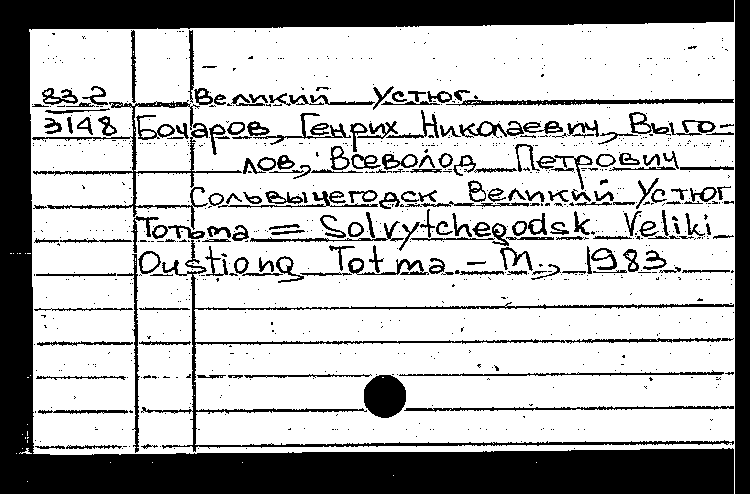 83-2 Великий Устюг.
3148 Бочаров, Генрих Николаевич, Выго-
лов, Всеволод Петрович
Сольвычегодск. Великий Устюг
Тотьма = Solvytchegodsk. Veliki
Oustioug Totma. - М., 1983.